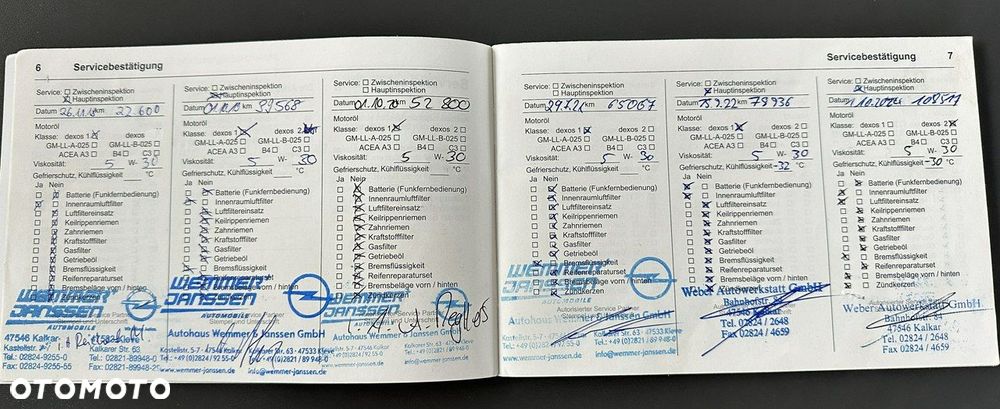 6 Servicebestätigung
Service: Zwischeninspektion
Hauptinspektion
Datum 26.11.18 km 22 600
Motoröl
Klasse: dexos 1 dexos 2
GM-LL-A-025 GM-LL-B-025
ACEA A3 B4 C3
Viskosität: 5 W- 30
Gefrierschutz, Kühlflüssigkeit °C
Ja Nein
Batterie (Funkfernbedienung)
Innenraumluftfilter
Luftfiltereinsatz
Keilrippenriemen
Zahnriemen
Kraftstofffilter
Gasfilter
Getriebeöl
Bremsflüssigkeit
Reifenreparaturset
Bremsbeläge vorn / hinten
Zündkerzen
WEMMER
JANSSEN
AUTOMOBILE
47546 Kalkar
Kastellstr. 5-7
Tel.: 02824-9255-0
Fax: 02824-9255-55
47533 Kleve
Kalkarer Str. 63
Tel.: 02821-89948-0
Service: Zwischeninspektion
Hauptinspektion
Datum 01.10.19 km 39568
Motoröl
Klasse: dexos 1 dexos 2
GM-LL-A-025 GM-LL-B-025
ACEA A3 B4 C3
Viskosität: 5 W- 30
Gefrierschutz, Kühlflüssigkeit °C
Ja Nein
Batterie (Funkfernbedienung)
Innenraumluftfilter
Luftfiltereinsatz
Keilrippenriemen
Zahnriemen
Kraftstofffilter
Gasfilter
Getriebeöl
Bremsflüssigkeit
Reifenreparaturset
Bremsbeläge vorn / hinten
WEMMER
JANSSEN
AUTOMOBILE
Autohaus Wemmer & Janssen GmbH
Kastellstr. 5-7 · 47546 Kalkar
Kalkarer Str. 63 · 47533 Kleve
info@wemmer-janssen.de
Service: Zwischeninspektion
Hauptinspektion
Datum 01.10.20 km 52 800
Motoröl
Klasse: dexos 1 dexos 2
GM-LL-A-025 GM-LL-B-025
ACEA A3 B4 C3
Viskosität: 5 W- 30
Gefrierschutz, Kühlflüssigkeit °C
Ja Nein
Batterie (Funkfernbedienung)
Innenraumluftfilter
Luftfiltereinsatz
Keilrippenriemen
Zahnriemen
Kraftstofffilter
Gasfilter
Getriebeöl
Bremsflüssigkeit
Reifenreparaturset
Bremsbeläge vorn / hinten
Zündkerzen
WEMMER
JANSSEN
Autohaus Wemmer & Janssen GmbH
info@wemmer-janssen.de
Servicebestätigung 7
Service: Zwischeninspektion
Hauptinspektion
Datum 29.7.21 km 65067
Motoröl
Klasse: dexos 1 dexos 2
GM-LL-A-025 GM-LL-B-025
ACEA A3 B4 C3
Viskosität: 5 W- 30
Gefrierschutz, Kühlflüssigkeit °C
Ja Nein
Batterie (Funkfernbedienung)
Innenraumluftfilter
Luftfiltereinsatz
Keilrippenriemen
Zahnriemen
Kraftstofffilter
Gasfilter
Getriebeöl
Bremsflüssigkeit
Reifenreparaturset
Bremsbeläge vorn / hinten
Zündkerzen
WEMMER
JANSSEN
AUTOMOBILE
Autohaus Wemmer & Janssen GmbH
Kalkarer Str. 63 · 47533 Kleve
info@wemmer-janssen.de
Service: Zwischeninspektion
Hauptinspektion
Datum km 78936
Motoröl
Klasse: dexos 1 dexos 2
GM-LL-A-025 GM-LL-B-025
ACEA A3 B4 C3
Viskosität: 5 W- 30
Gefrierschutz, Kühlflüssigkeit -32 °C
Ja Nein
Batterie (Funkfernbedienung)
Innenraumluftfilter
Luftfiltereinsatz
Keilrippenriemen
Zahnriemen
Kraftstofffilter
Gasfilter
Getriebeöl
Bremsflüssigkeit
Reifenreparaturset
Bremsbeläge vorn / hinten
Weber Autowerkstatt GmbH
Bahnhofstr
47546 Kalkar
Tel. 02824 / 2648
Fax 02824 / 4659
Service: Zwischeninspektion
Hauptinspektion
Datum km
Motoröl
Klasse: dexos 1 dexos 2
GM-LL-A-025 GM-LL-B-025
ACEA A3 B4 C3
Viskosität: 5 W- 30
Gefrierschutz, Kühlflüssigkeit -30 °C
Ja Nein
Batterie (Funkfernbedienung)
Innenraumluftfilter
Luftfiltereinsatz
Keilrippenriemen
Zahnriemen
Kraftstofffilter
Gasfilter
Getriebeöl
Bremsflüssigkeit
Reifenreparaturset
Bremsbeläge vorn / hinten
Zündkerzen
Weber Autowerkstatt GmbH
47546 Kalkar
Tel. 02824 / 2648
Fax 02824 / 4659
OTOMOTO